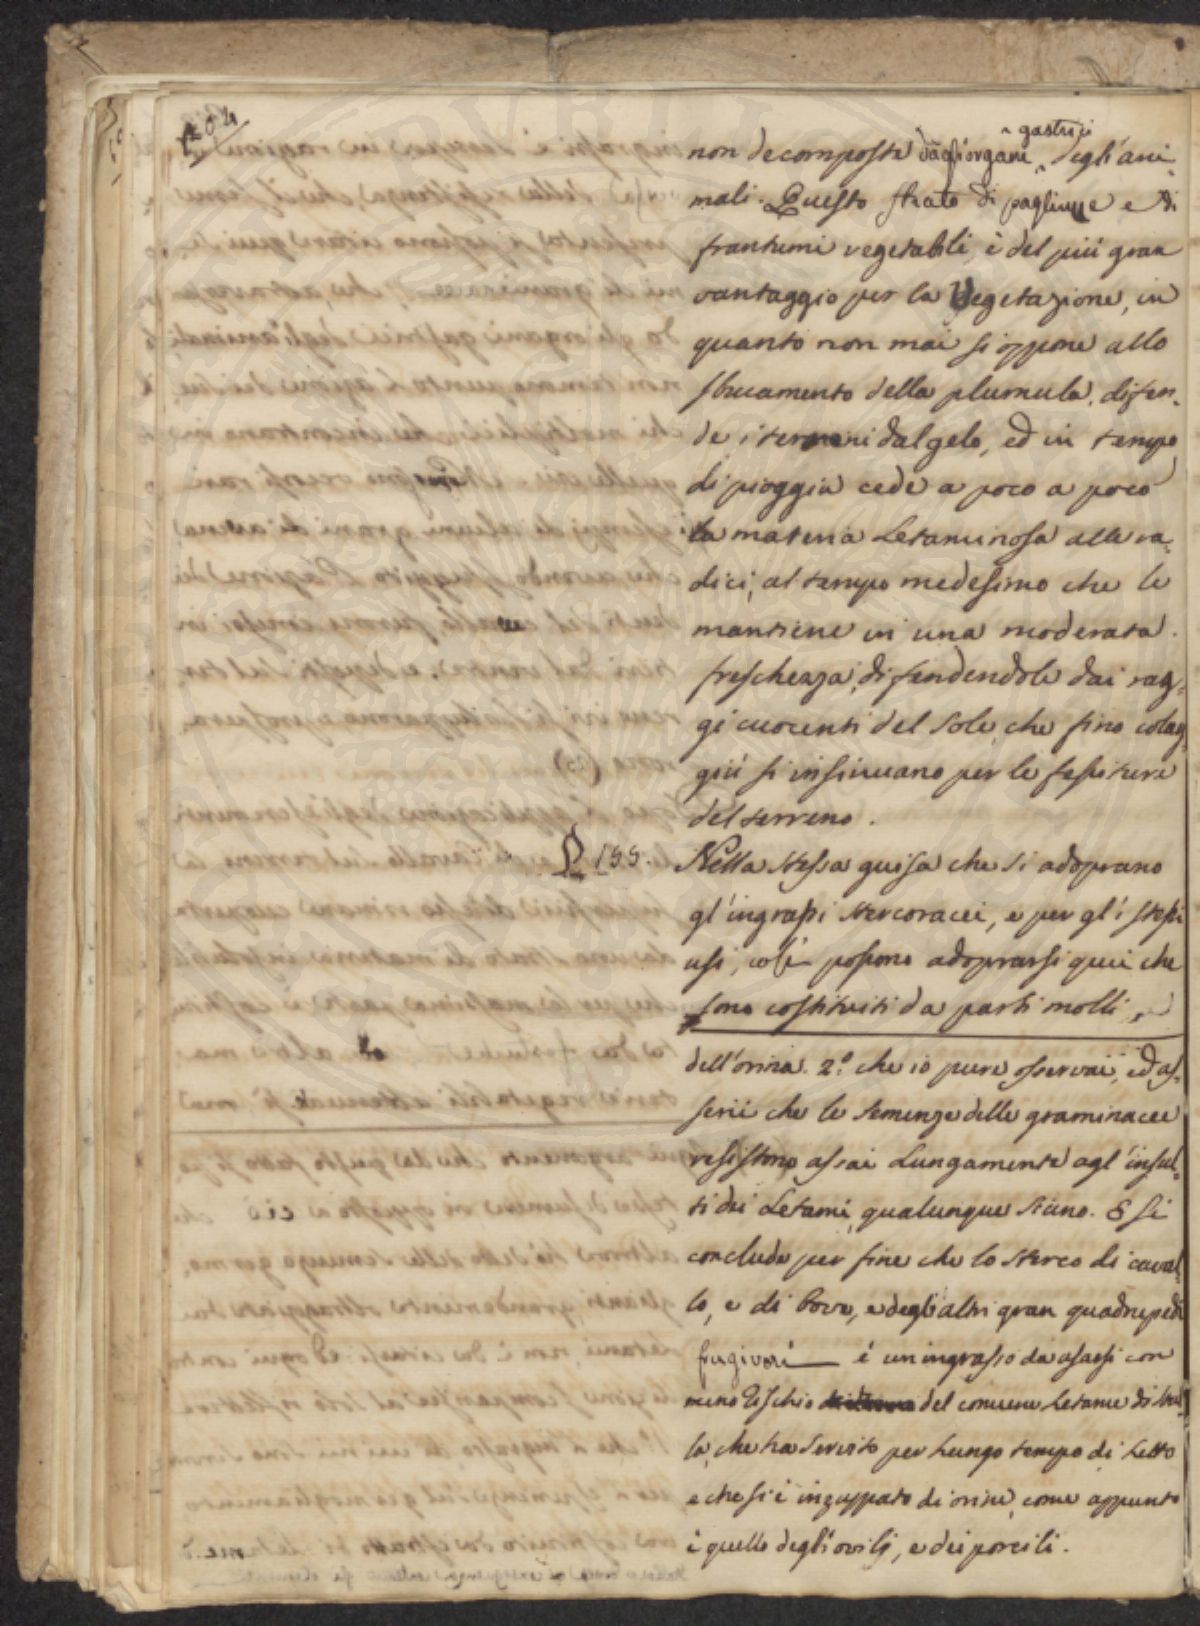 204
non decomposta dagl'organi ^gastrici^ degl'ani-
mali. Questo strato di pagliuzze e di
frantumi vegetabili è del più gran
vantaggio per la Vegetazione, in
quanto non mai si oppone allo
sbucamento della plumula, difen-
de i terreni dal gelo, ed in tempo
di pioggia cede a poco a poco
la materia Letaminosa alle ra-
dici, al tempo medesimo che le
mantiene in una moderata
freschezza, difendendole dai rag-
gi cuocenti del Sole, che fino colag-
giù si insinuano per le fessture
del terreno.
§ 155. Nella stessa guisa che si adoprano
gl'ingrassi stercoracei, e per gl'i stessi
usi, così possono adoprarsi quei che
sono costituiti da parti molli,
dell'orina. 2.º che io pure osservai, ed as-
serii che le semenze delle graminacee
resistono assai Lungamente agl'insul-
ti dei Letami qualunque siano. E si
concluda per fine che lo sterco di caval-
lo, e di bove, e degli altri gran quadrupedi
frugivori è un ingrasso da usarsi con
meno rischio del comune Letame di stal-
la, che ha servito per Lungo tempo di Letto
e che si è inzuppato di orine, come appunto
è quello degl'ovili, e dei porcili.